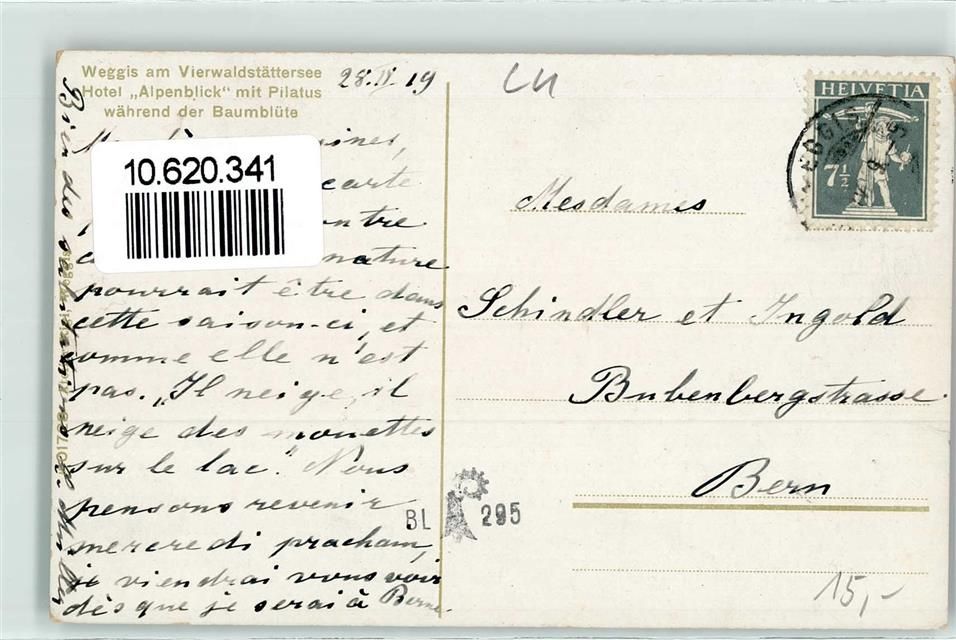 Weggis am Vierwaldstättersee
Hotel „Alpenblick“ mit Pilatus
während der Baumblüte
28.IV 19
10.620.341
carte
nature
pourrait être dans
cette saison-ci, et
comme elle n'est
pas. „Il neige, il
neige des mouettes
sur le lac." Nous
pensons revenir
mercredi prochain,
je viendrai vous voir
dès que je serai à Berne.
Bien des
LU
HELVETIA
7½
Mesdames
Schindler et Ingold
Bubenbergstrasse
Bern
BL 295
15,-